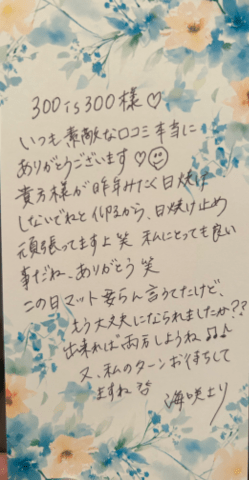 300is300様♡
いつも素敵な口コミ本当に
ありがとうございます♡☺
貴方様が昨年みたく日焼け
しないでねと仰るから、日焼け止め
頑張ってますよ笑 私にとっても良い
事だね、ありがとう笑
この日マット要らん言うてたけど、
もう大丈夫になられましたか??
出来れば両方しようね♫♪
又、私のターンお待ちして
ますね
海咲より